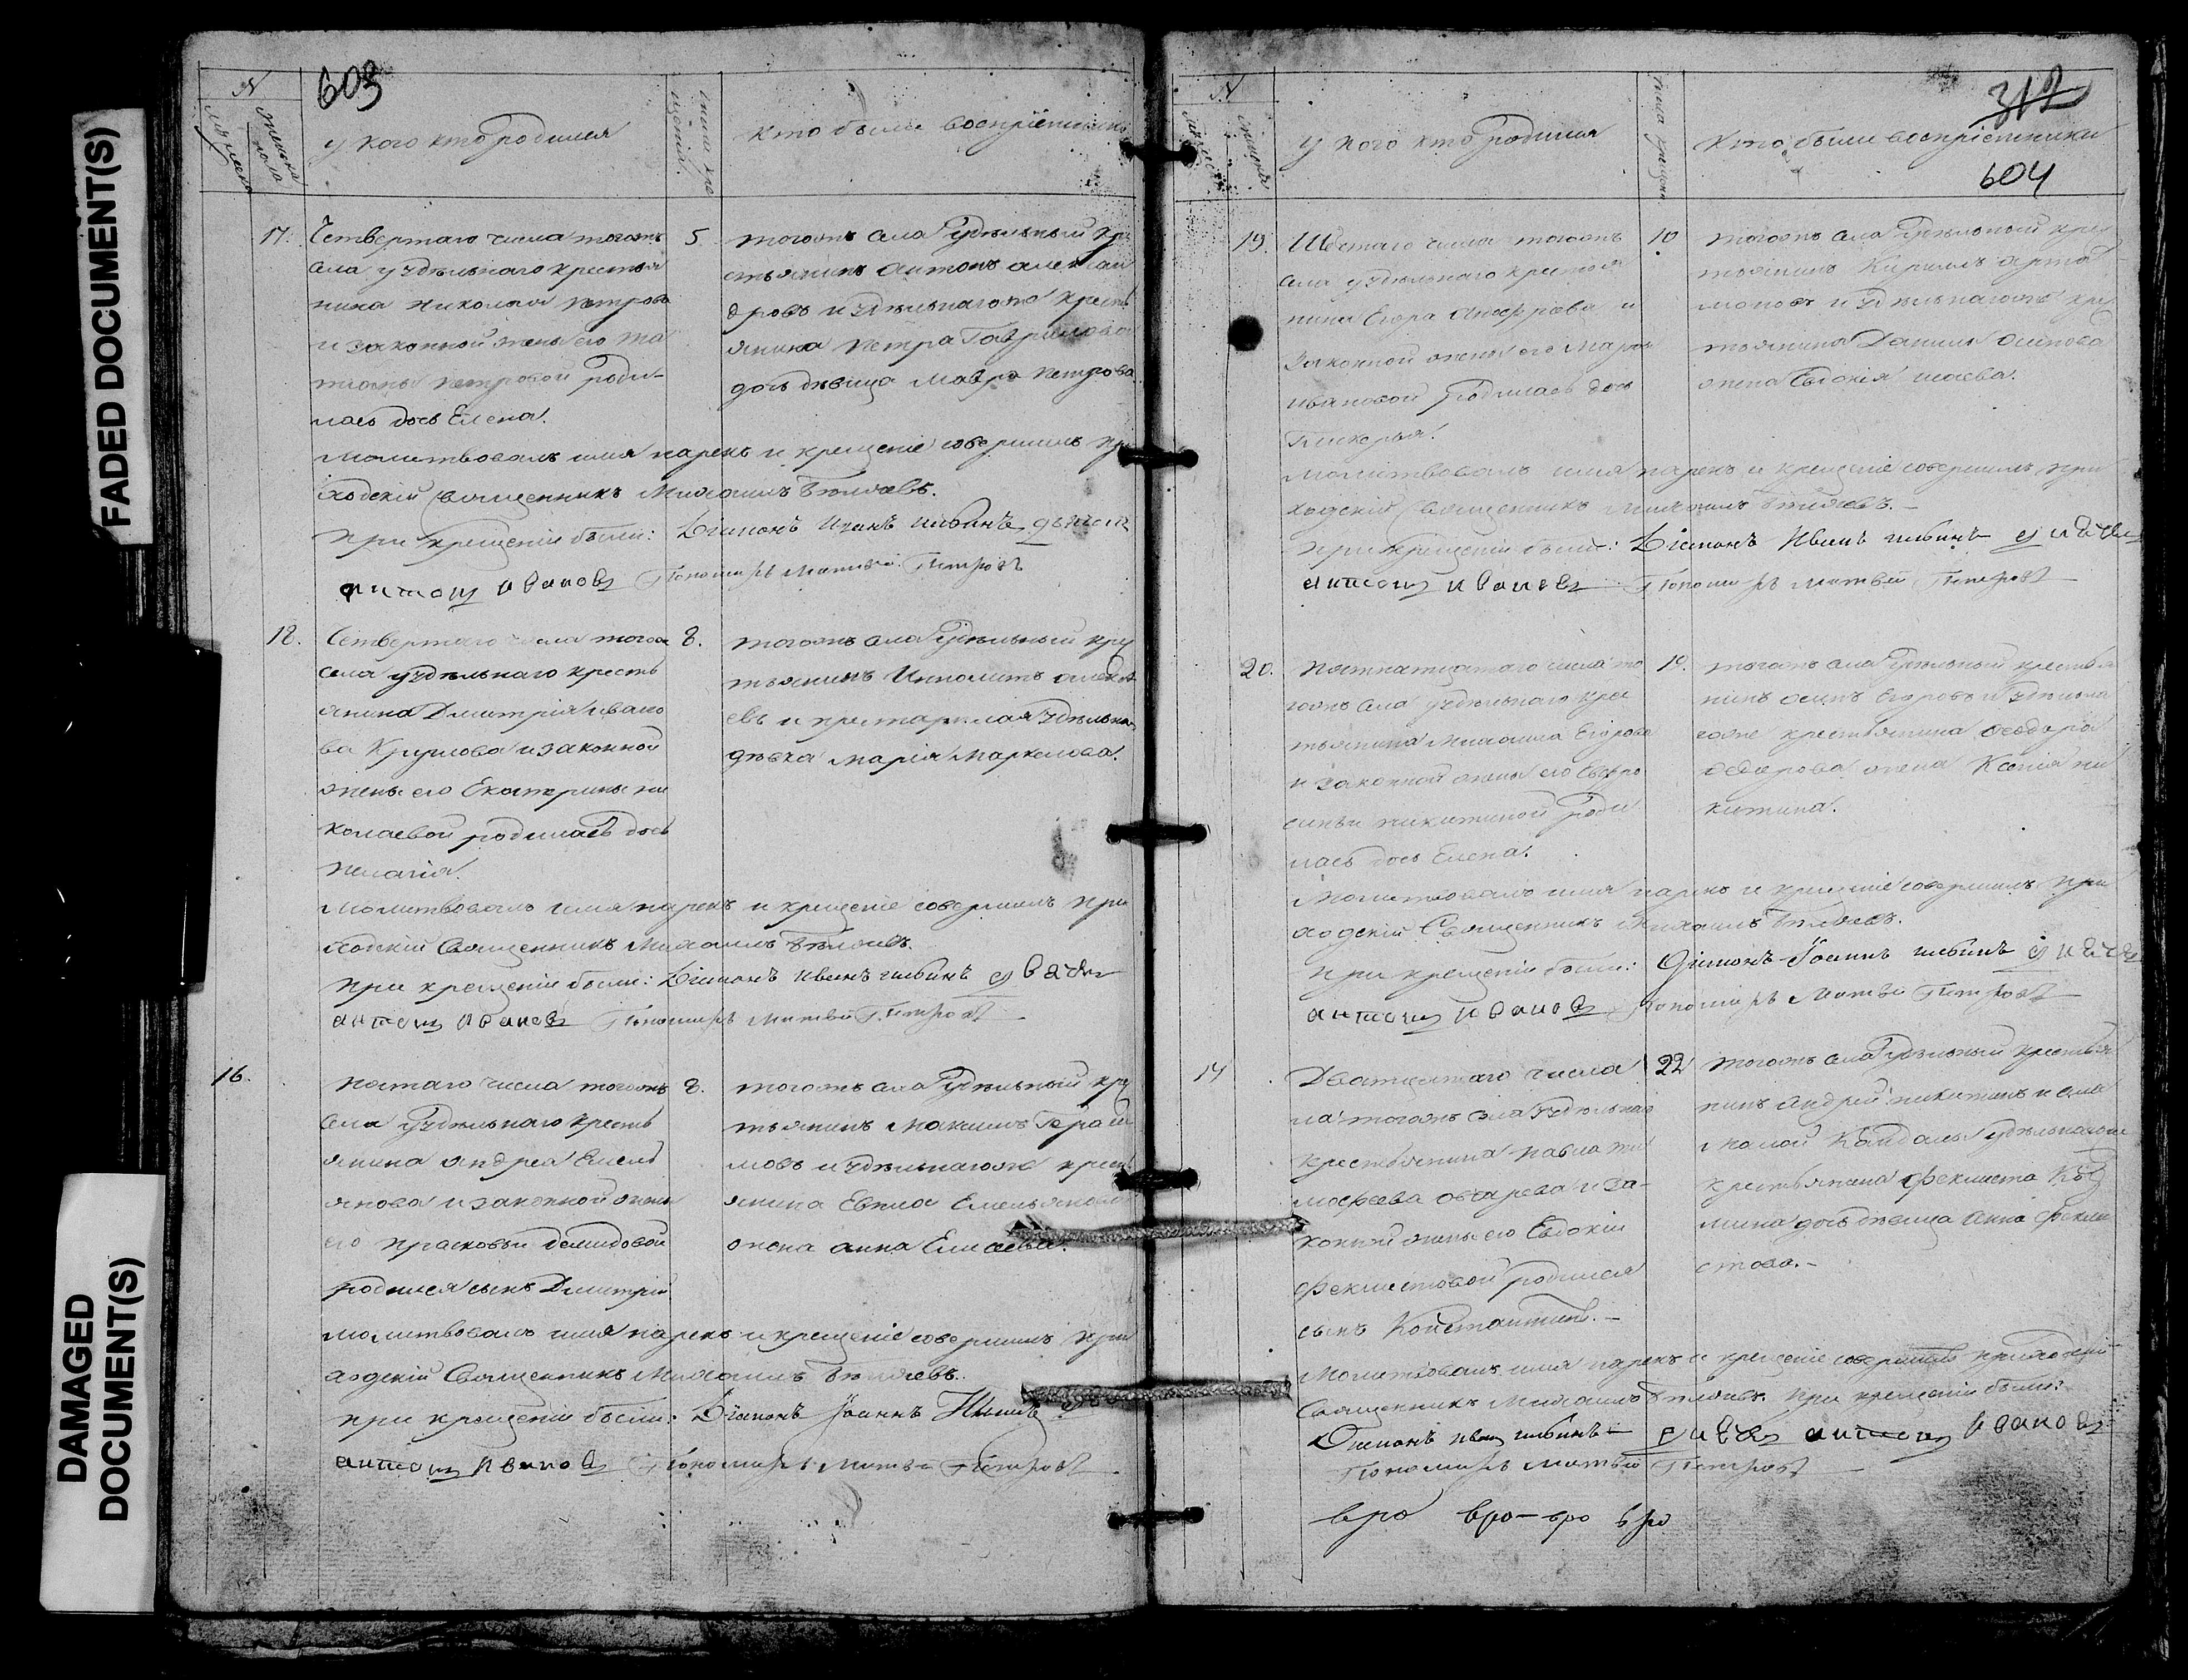 FADED DOCUMENT(S)
DAMAGED
DOCUMENT(S)
603
N
женска пола
у кого кто родился
кто были воспріемники
17.
Четвертаго числа тогожъ
села удѣльнаго крестья
нина Николая Петрова
и законной жены его Та
тіоны Петровой роди-
лась дочь Елена.
5
тогожъ села Удѣльный кре
стьянинъ Антонъ Алексан
дровъ и удѣльнагожъ кресть
янина Петра Гаврилова
дочь дѣвица Мавра Петрова
Молитвовалъ имя нарекъ и крещеніе совершилъ при
ходскій Священникъ Михаилъ Бѣляевъ.
При крещеніи были: Діаконъ Иванъ
Антонъ Ивановъ Пономарь Матвѣй Петровъ
18.
Четвертаго числа тогожъ
села удѣльнаго кресть
янина Димитрія Ивано
ва Круглова и законной
жены его Екатерины Ни
колаевой родилась дочь
Пелагія.
8.
тогожъ села Удѣльный кре
стьянинъ Ипполитъ Алексѣ
евъ и престарѣлая удѣльна
дѣвка Марія Маркелова.
Молитвовалъ имя нарекъ и крещеніе совершилъ при
ходскій Священникъ Михаилъ Бѣляевъ.
При крещеніи были: Діаконъ Иванъ
Антонъ Ивановъ Пономарь Матвѣй Петровъ
16.
Пятаго числа тогожъ
села Удѣльнаго кресть
янина Андрея Емель
янова и законной жены
его Прасковьи Демидовой
родился сынъ Димитрій
8.
тогожъ села Удѣльный кре
стьянинъ Максимъ Гераси
мовъ и удѣльнагожъ крест
янина Евпла Емельянова
жена Анна Елисеева.
Молитвовалъ имя нарекъ и крещеніе совершилъ при
ходскій Священникъ Михаилъ Бѣляевъ.
при крещеніи были: Діаконъ Іоаннъ
Антонъ Ивановъ Пономарь Матвѣй Петровъ
N
312
604
у кого кто родился
Кто были воспріемники
19.
Шестаго числа тогожъ
села удѣльнаго крестья
нина Егора и
законной жены его Марьи
Ивановой родилась дочь
Гликерья.
10
тогожъ села Удѣльный кре
стьянинъ Кирилъ Арта
моновъ и Удѣльнагожъ кре
стьянина Данила Осипова
жена Евдокія Исаева.
Молитвовалъ имя нарекъ и крещеніе совершилъ при
ходскій Священникъ Михаилъ Бѣляевъ.
При крещеніи были: Діаконъ Иванъ
Антонъ Ивановъ Пономарь Матвѣй Петровъ
20.
Пятнатцатаго числа то
гожъ села удѣльнаго кре
стьянина Михаила Егорова
и законной жены его Евфро
синьи Никитиной роди
лась дочь Елена.
19.
тогожъ села Удѣльный крестья
нинъ Осипъ Егоровъ и удѣльна
гоже крестьянина Ѳеодора
Ѳедорова жена Ксенія Ни
китина.
Молитвовалъ имя нарекъ и крещеніе совершилъ при
ходскій Священникъ Михаилъ Бѣляевъ.
При крещеніи были: Діаконъ Іоаннъ
Антонъ Ивановъ Пономарь Матвѣй Петровъ
17
Дватцатаго числа
тогожъ села Удѣльнаго
крестьянина Павла Ти
мофеева Овчарева и за-
конной жены его Евдокіи
Феклистовой родился
сынъ Константинъ.
22
тогожъ села Удѣльный крестья
нинъ Андрей Никитинъ и села
Малой Кандалы удѣльнагоже
крестьянина Феклиста Куз
мина дочь дѣвица Анна Фекли
стова.
Молитвовалъ имя нарекъ и крещеніе совершилъ приходскій
Священникъ Михаилъ Бѣляевъ. При крещеніи были:
Діаконъ Иванъ Антонъ Ивановъ
Пономарь Матвѣй Петровъ